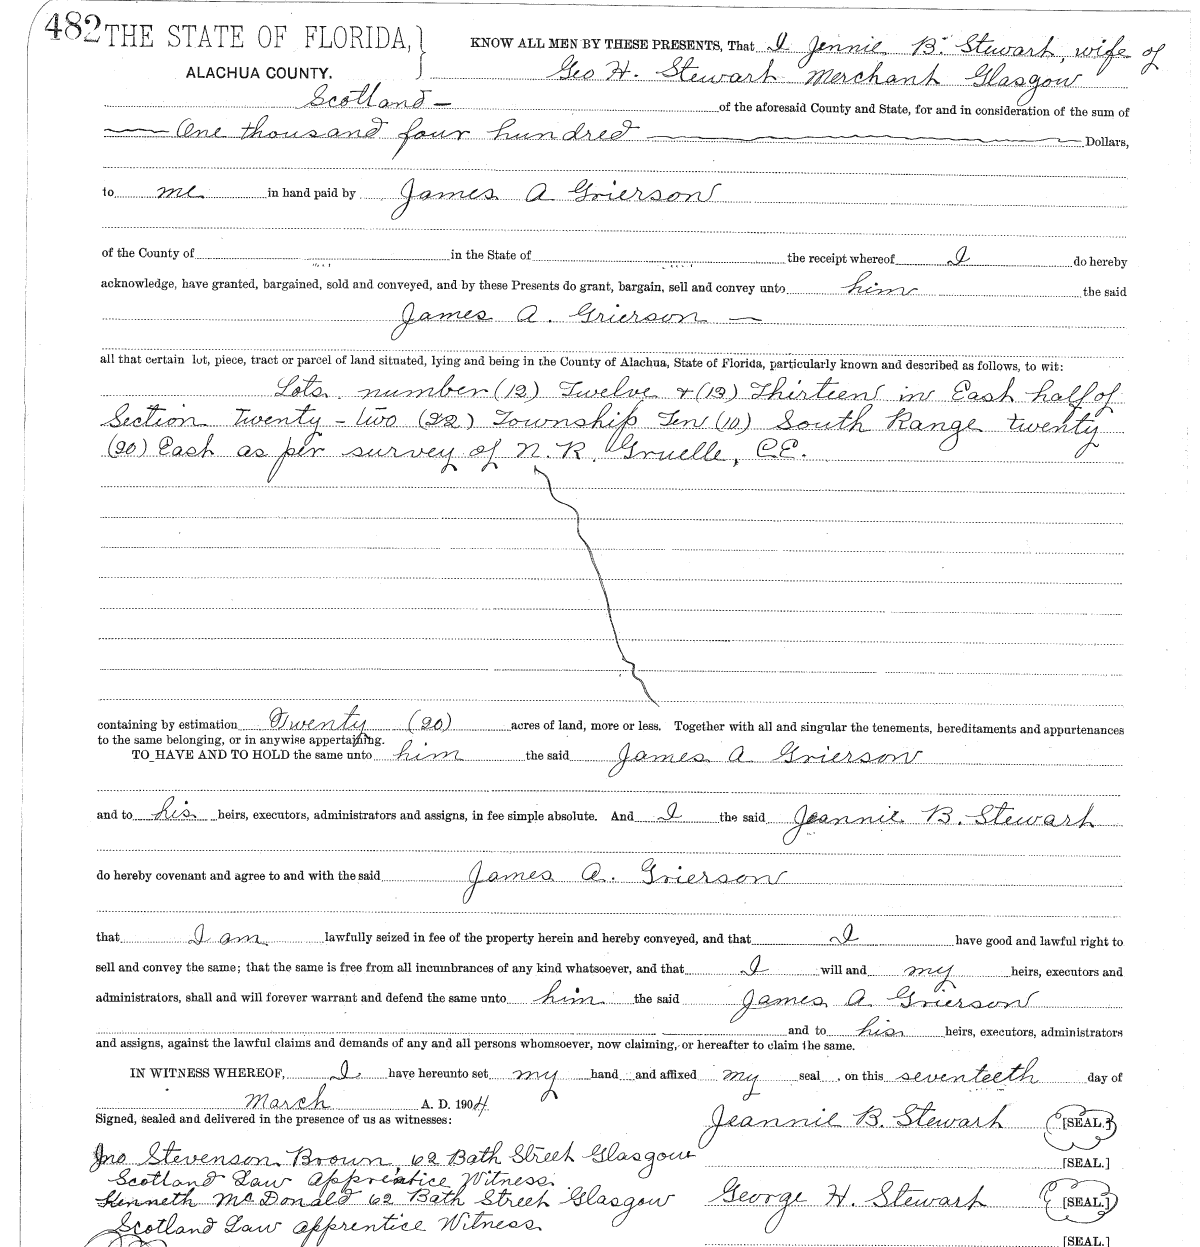 482 THE STATE OF FLORIDA,
ALACHUA COUNTY.
KNOW ALL MEN BY THESE PRESENTS, That I Jennie B. Stewart, wife of
Geo H. Stewart Merchant Glasgow
Scotland — of the aforesaid County and State, for and in consideration of the sum of
One thousand four hundred Dollars,
to me in hand paid by James A Grierson
of the County of in the State of the receipt whereof I do hereby
acknowledge, have granted, bargained, sold and conveyed, and by these Presents do grant, bargain, sell and convey unto him the said
James A. Grierson —
all that certain lot, piece, tract or parcel of land situated, lying and being in the County of Alachua, State of Florida, particularly known and described as follows, to wit:
Lots number (12) Twelve & (13) Thirteen in East half of
Section twenty-two (22) Township Ten (10) South Range twenty
(20) East as per survey of N. R. Gruelle, C.E.
containing by estimation Twenty (20) acres of land, more or less. Together with all and singular the tenements, hereditaments and appurtenances
to the same belonging, or in anywise appertaining.
TO HAVE AND TO HOLD the same unto him the said James A Grierson
and to his heirs, executors, administrators and assigns, in fee simple absolute. And I the said Jeannie B. Stewart
do hereby covenant and agree to and with the said James A. Grierson
that I am lawfully seized in fee of the property herein and hereby conveyed, and that I have good and lawful right to
sell and convey the same; that the same is free from all incumbrances of any kind whatsoever, and that I will and my heirs, executors and
administrators, shall and will forever warrant and defend the same unto him the said James A Grierson
and to his heirs, executors, administrators
and assigns, against the lawful claims and demands of any and all persons whomsoever, now claiming, or hereafter to claim the same.
IN WITNESS WHEREOF, I have hereunto set my hand and affixed my seal, on this seventeeth day of
March A. D. 1904
Signed, sealed and delivered in the presence of us as witnesses:
Jeannie B. Stewart [SEAL.]
Jno Stevenson Brown, 62 Bath Street Glasgow
[SEAL.]
Scotland Law Apprentice Witness.
Kenneth McDonald 62 Bath Street Glasgow
George H. Stewart [SEAL.]
Scotland Law apprentice Witness.
[SEAL.]